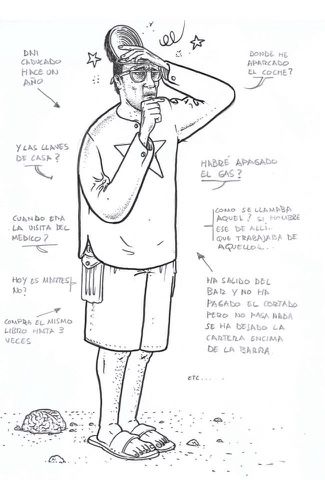 DNI
CADUCADO
HACE UN
AÑO
DONDE HE
APARCADO
EL COCHE?
Y LAS LLAVES
DE CASA?
HABRÉ APAGADO
EL GAS?
CUANDO ERA
LA VISITA DEL
MEDICO?
COMO SE LLAMABA
AQUEL? SI HOMBRE
ESE DE ALLI.
QUE TRABAJABA DE
AQUELLO...
HOY ES MARTES
NO?
COMPRA EL MISMO
LIBRO HASTA 3
VECES
HA SALIDO DEL
BAR Y NO HA
PAGADO EL CORTADO
PERO NO PASA NADA
SE HA DEJADO LA
CARTERA ENCIMA
DE LA BARRA
ETC......